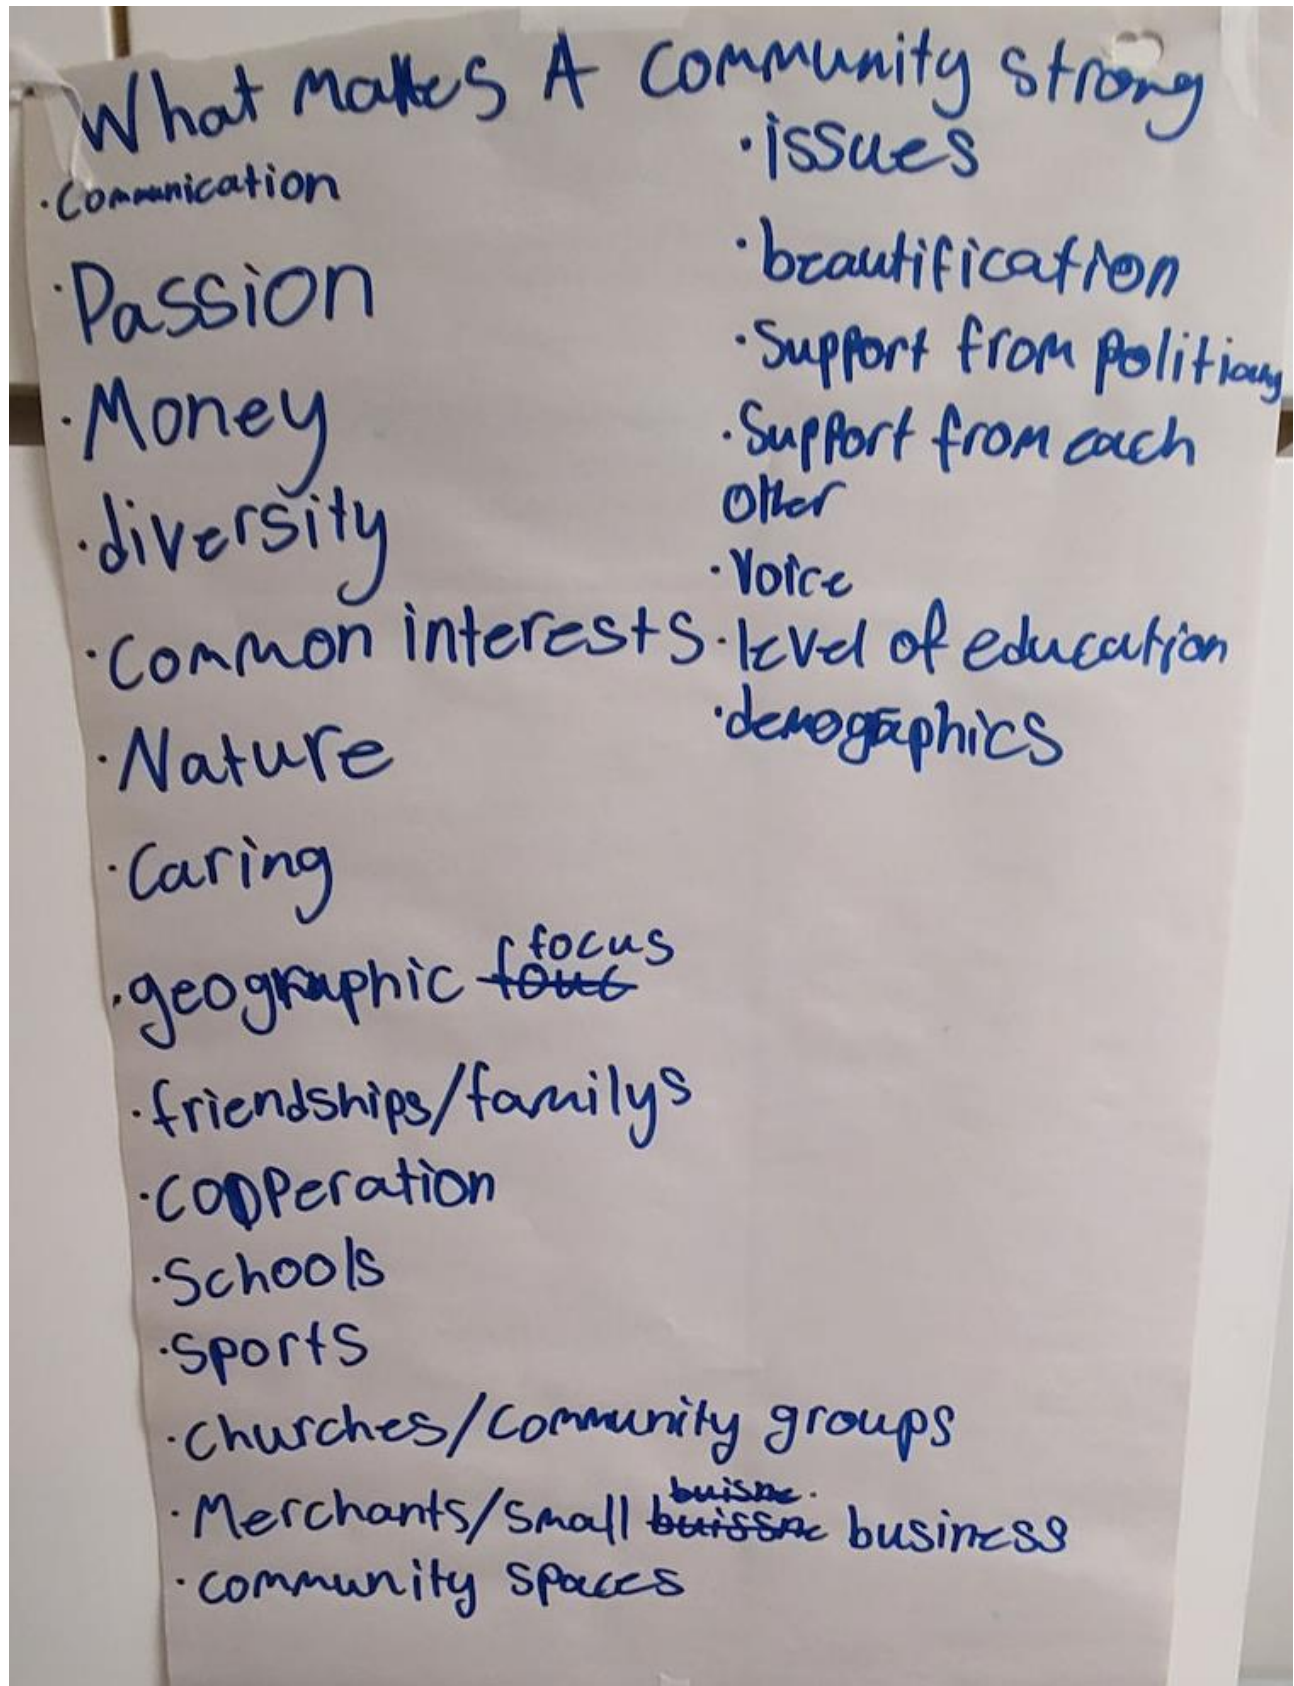 What makes A Community strong
· Communication
· Passion
· Money
· diversity
· Common interests
· Nature
· Caring
· geographic focus
· friendships/familys
· cooperation
· Schools
· Sports
· Churches/Community groups
· Merchants/small business
· community spaces
· issues
· beautification
· Support from
· Support from each
other
· Voice
· level of education
· demographics